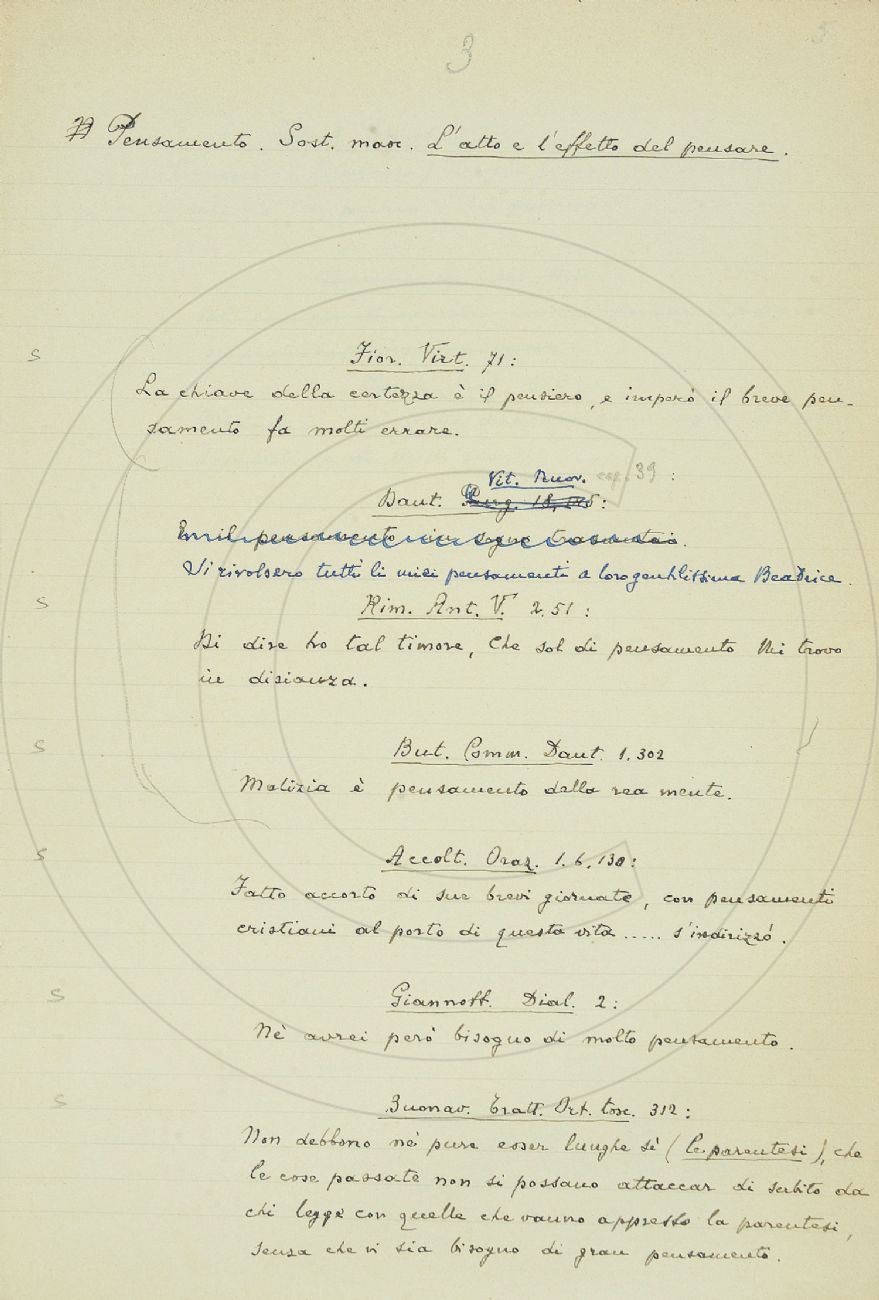 3 5
Pensamento. Sost. masc. L'atto e l'effetto del pensare.
S Fior. Virt. 71:
La chiave della certezza è il pensiero, e imperò il breve pen-
samento fa molti errare.
Vit. Nuov. cap. 39:
Dant. Purg. 18,
pensamento
Si rivolsero tutti li miei pensamenti a loro gentilissima Beatrice.
S Rim. Ant. V. 2. 51:
Di dire ho tal timore, Che sol di pensamento Mi trovo
in disianza.
S But. Comm. Dant. 1. 302
Malizia è pensamento della rea mente.
S Accolt. Oraz. 1. 6. 130:
Fatto accorto di sue brevi giornate, con pensamenti
cristiani al porto di questa vita ..... s'indirizzò.
S Giannott. Dial. 2:
Nè avrei però bisogno di molto pensamento.
S Buonav. Tratt. Ort. tosc. 312:
Non debbono nè pure esser lunghe sì (le parentesi), che
le cose passate non si possano attaccar di subito da
chi legge con quelle che vanno appresso la parentesi,
senza che vi sia bisogno di gran pensamento.